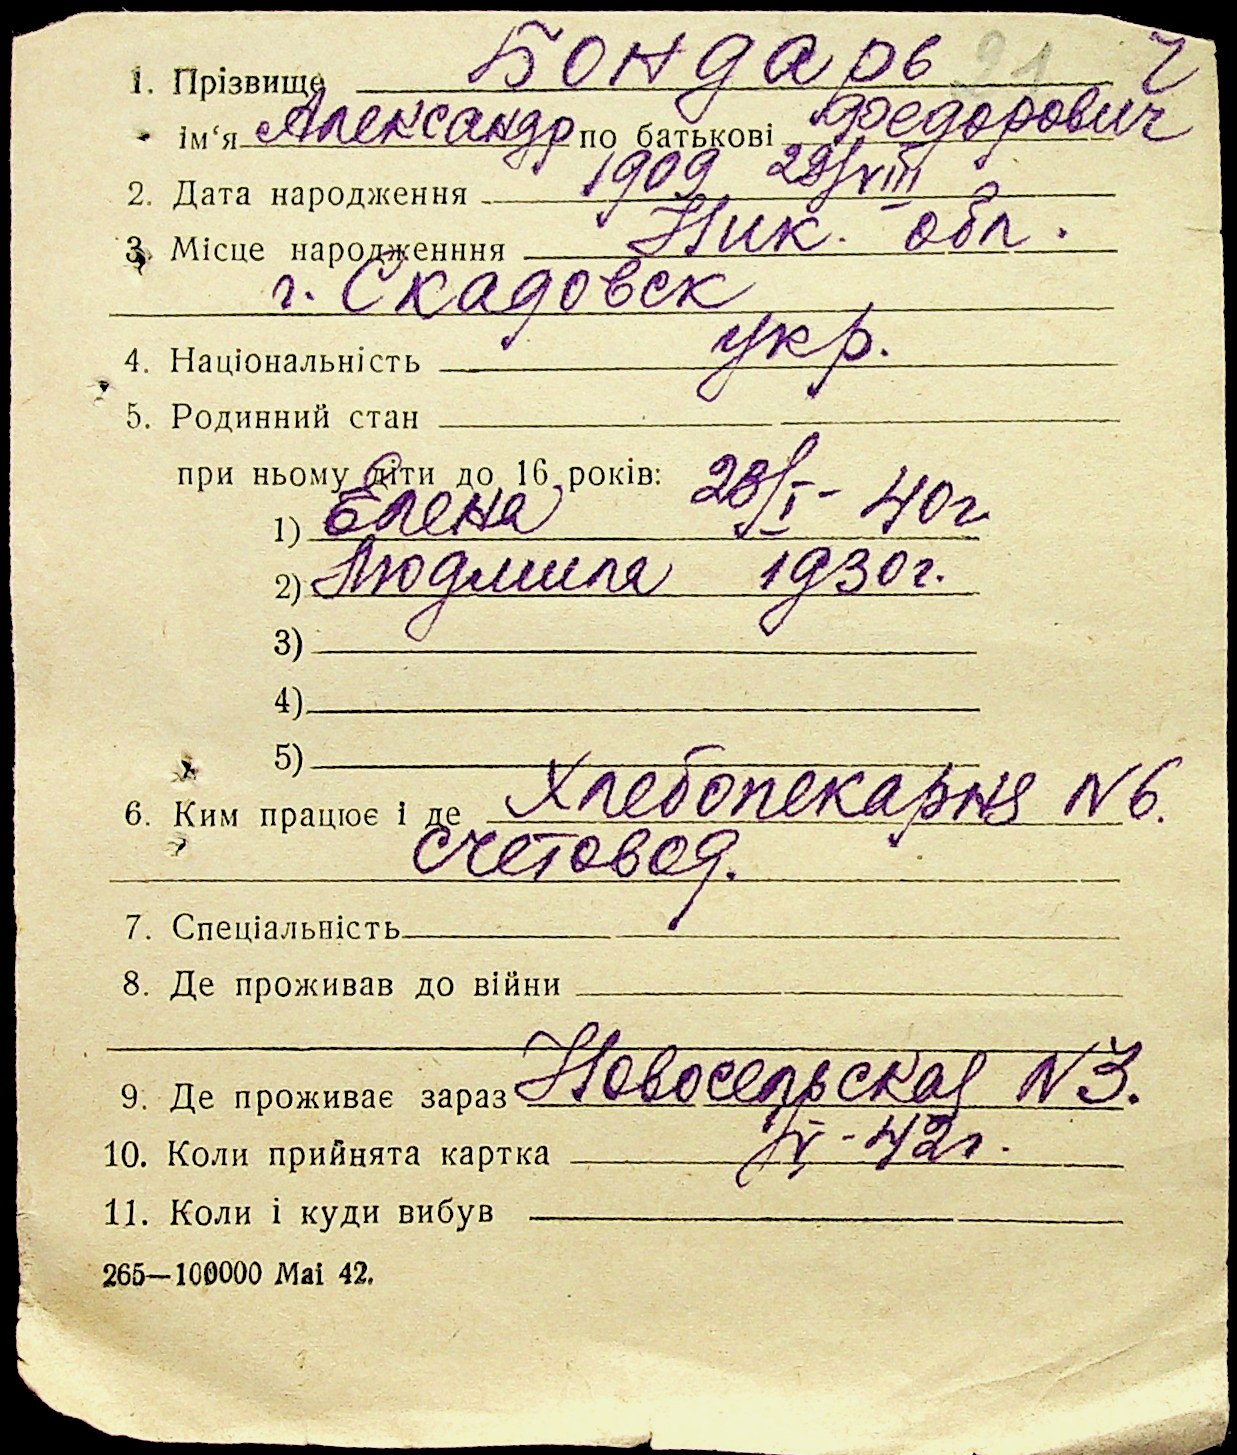 1. Прізвище Бондарь 21 Ч
ім‘я Александр по батькові Федорович
2. Дата народження 1909 28/VIII
3. Місце народженння Ник. обл.
г. Скадовск
4. Національність укр.
5. Родинний стан
при ньому діти до 16 років:
1) Елена 28/I - 40г
2) Людмила 1930г.
3)
4)
5)
6. Ким працює і де Хлебопекарня N 6.
счетовод.
7. Спеціальність
8. Де проживав до війни
9. Де проживає зараз Новосельская N 3.
10. Коли прийнята картка IV - 42г.
11. Коли і куди вибув
265—100000 Mai 42.